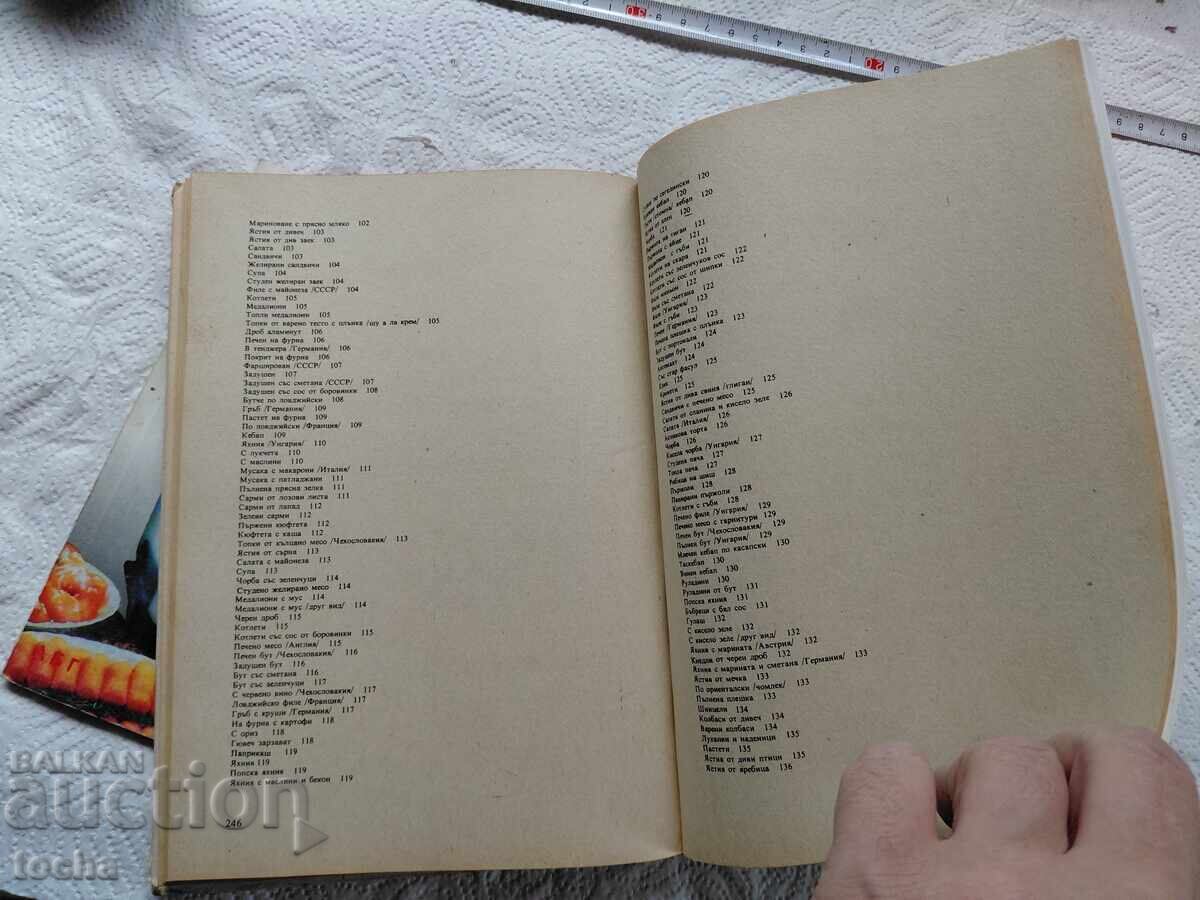 Мариноване с прясно мляко 102
Ястия от дивеч 103
Ястия от див заек 103
Салата 103
Сандвичи 103
Желирани сандвичи 104
Супа 104
Студен желиран заек 104
Филе с майонеза /СССР/ 104
Котлети 105
Медалиони 105
Топли медалиони 105
Топки от варено тесто с плънка /шу а ла крем/ 105
Дроб аламинут 106
Печен на фурна 106
В тенджера /Германия/ 106
Покрит на фурна 106
Фарширован /СССР/ 107
Задушен 107
Задушен със сметана /СССР/ 107
Задушен със сос от боровинки 108
Бутче по ловджийски 108
Гръб /Германия/ 109
Пастет на фурна 109
По ловджийски /Франция/ 109
Кебап 109
Яхния /Унгария/ 110
С лукчета 110
С маслини 110
Мусака с макарони /Италия/ 111
Мусака с патладжани 111
Пълнена прясна зелка 111
Сарми от лозови листа 111
Сарми от лапад 112
Зелеви сарми 112
Пържени кюфтета 112
Кюфтета с каша 112
Топки от кълцано месо /Чехословакия/ 113
Ястия от сърна 113
Салата с майонеза 113
Супа 113
Чорба със зеленчуци 114
Студено желирано месо 114
Медалиони с мус 114
Медалиони с мус /друг вид/ 114
Черен дроб 115
Котлети 115
Котлети със сос от боровинки 115
Печено месо /Англия/ 115
Печен бут /Чехословакия/ 116
Задушен бут 116
Бут със сметана 116
Бут със зеленчуци 117
С червено вино /Чехословакия/ 117
Ловджийско филе /Франция/ 117
Гръб с круши /Германия/ 117
На фурна с картофи 118
С ориз 118
Гювеч зарзават 118
Паприкаш 119
Яхния 119
Попска яхния 119
Яхния с маслини и бекон 119
246
120
кебап 120
кебап 120
120
121
на тиган 121
121
с гъби 121
Котлети на скара 121
Котлети със зеленчуков сос 122
Котлети със сос от шипки 122
122
със сметана 122
/Унгария/ 123
с гъби 123
Печен /Германия/ 123
Печена плешка с плънка 123
Бут с портокали 124
Задушен бут 124
124
Със стар фасул 125
Език 125
125
Ястия от дива свиня /глиган/ 125
Сандвичи с печено месо 125
Салата от сланина и кисело зеле 126
Салата /Италия/ 126
торта 126
Чорба 126
Кисела чорба /Унгария/ 127
Студена пача 127
Топла пача 127
на шиш 128
Пържоли 128
Панирани пържоли 128
Котлети с гъби 128
Печено филе /Унгария/ 129
Печено месо с гарнитури 129
Печен бут /Чехословакия/ 129
Пълнен бут /Унгария/ 129
кебап по касапски 130
Таскебап 130
Винен кебап 130
Руладини 130
Руладини от бут 131
Попска яхния 131
Бъбреци с бял сос 131
Гулаш 132
С кисело зеле 132
С кисело зеле /друг вид/ 132
Яхния с марината /Австрия/ 132
Кнедли от черен дроб 132
Яхния с марината и сметана /Германия/ 133
Ястия от мечка 133
По ориенталски /чомлек/ 133
Пълнена плешка 133
Шницели 134
Колбаси от дивеч 134
Варени колбаси 134
Луканки и надемици 135
Пастети 135
Ястия от диви птици 135
Ястия от яребица 136
BALKAN
auction
tocha